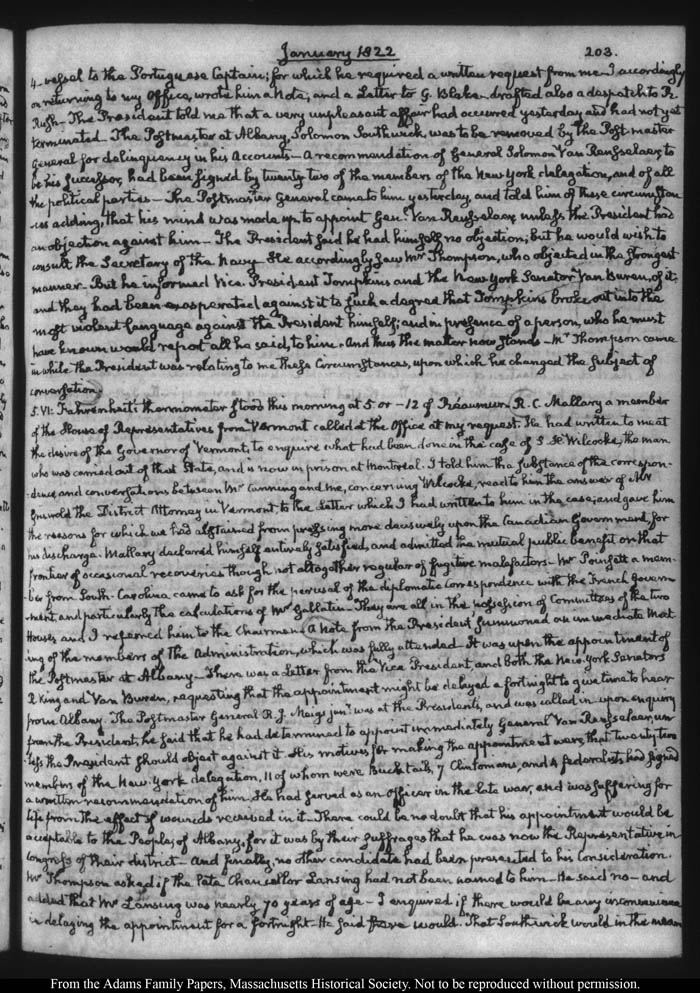 January 1822
203.
4. vessel to the Portuguese Captain; for which he required a written request from me. I accordingly
on returning to my Office, wrote him a Note; and a Letter to G. Blake drafted also a despatch to R.
Rush— The President told me that a very unpleasant affair had occurred yesterday and had not yet
terminated— The Postmaster at Albany, Solomon Southwick, was to be removed by the Post master
General for delinquency in his Accounts— A recommendation of General Solomon Van Rensselaer, to
be his successor, had been signed by twenty two of the members of the New York delegation, and of all
the political parties— The Postmaster General came to him yesterday, and told him of these circumstan
ces adding, that his mind was made up to appoint Genl. Van Rensselaer, unless the President had
an objection against him— The President said he had himself no objection; but he would wish to
consult the Secretary of the Navy. He accordingly saw Mr Thompson, who objected in the strongest
manner. But he informed Vice President Tompkins and the New York Senator Van Buren, of it;
and they had been exasperated against it to such a degree that Tompkins broke out into the
most violent language against the President himself; and in presence of a person, who he must
have known would report all he said, to him— And thus the matter now stands— Mr Thompson came
in while the President was relating to me these Circumstances, upon which he changed the subject of
conversation.
5. VI: Fahrenheit's thermometer stood this morning at 5 or −12 of Réaumur. R. C. Mallary a member
of the House of Representatives from Vermont called at the Office at my request. He had written to me at
the desire of the Governor of Vermont, to enquire what had been done in the case of S. H. Wilcocks, the man
who was carried out of that State, and is now in prison at Montreal. I told him the substance of the correspon-
-dence and conversations between Mr Canning and me, concerning Wilcocks, read to him the answer of Mr
Griswold the District Attorney in Vermont, to the Letter which I had written to him in the case; and gave him
the reasons for which we had abstained from pressing more decisively upon the Canadian Government, for
his discharge. Mallary declared himself entirely satisfied, and admitted the mutual public benefit on that
frontier of occasional recoveries though not altogether regular of fugitive malefactors— Mr Poinsett a mem-
-ber from South-Carolina came to ask for the perusal of the diplomatic correspondence with the French Govern
-ment, and particularly the calculations of Mr Gallatin— They are all in the possession of Committees of the two
Houses and I referred him to the Chairmen— A Note from the President summoned an immediate meet
ing of the members of the Administration, which was fully attended— It was upon the appointment of
the Postmaster at Albany— There was a Letter from the Vice President, and both the New-York Senators
R King and Van Buren, requesting that the appointment might be delayed a fortnight to give time to hear
from Albany. The Postmaster General R. J. Meigs junr. was at the Presidents, and was called in— upon enquiry
from the President, he said that he had determined to appoint immediately General Van Rensselaer, un
-less the President should object against it. His motives for making the appointment were, that twenty two
members of the New-York delegation, 11 of whom were Bucktails, 7 Clintonians, and 4 federalists had signed
a written recommendation of him. He had served as an Officer in the late war, and was suffering for
life from the effect of wounds received in it— There could be no doubt that his appointment would be
acceptable to the People of Albany, for it was by their suffrages that he was now the Representative in
Congress of their district— And finally, no other candidate had been presented to his consideration.
Mr Thompson asked if the late Chancellor Lansing had not been named to him— He said no— and
added that Mr Lansing was nearly 70 years of age— I enquired if there would be any inconvenience
in delaying the appointment for a fortnight. He said there would. That Southwick would in the mean
From the Adams Family Papers, Massachusetts Historical Society. Not to be reproduced without permission.